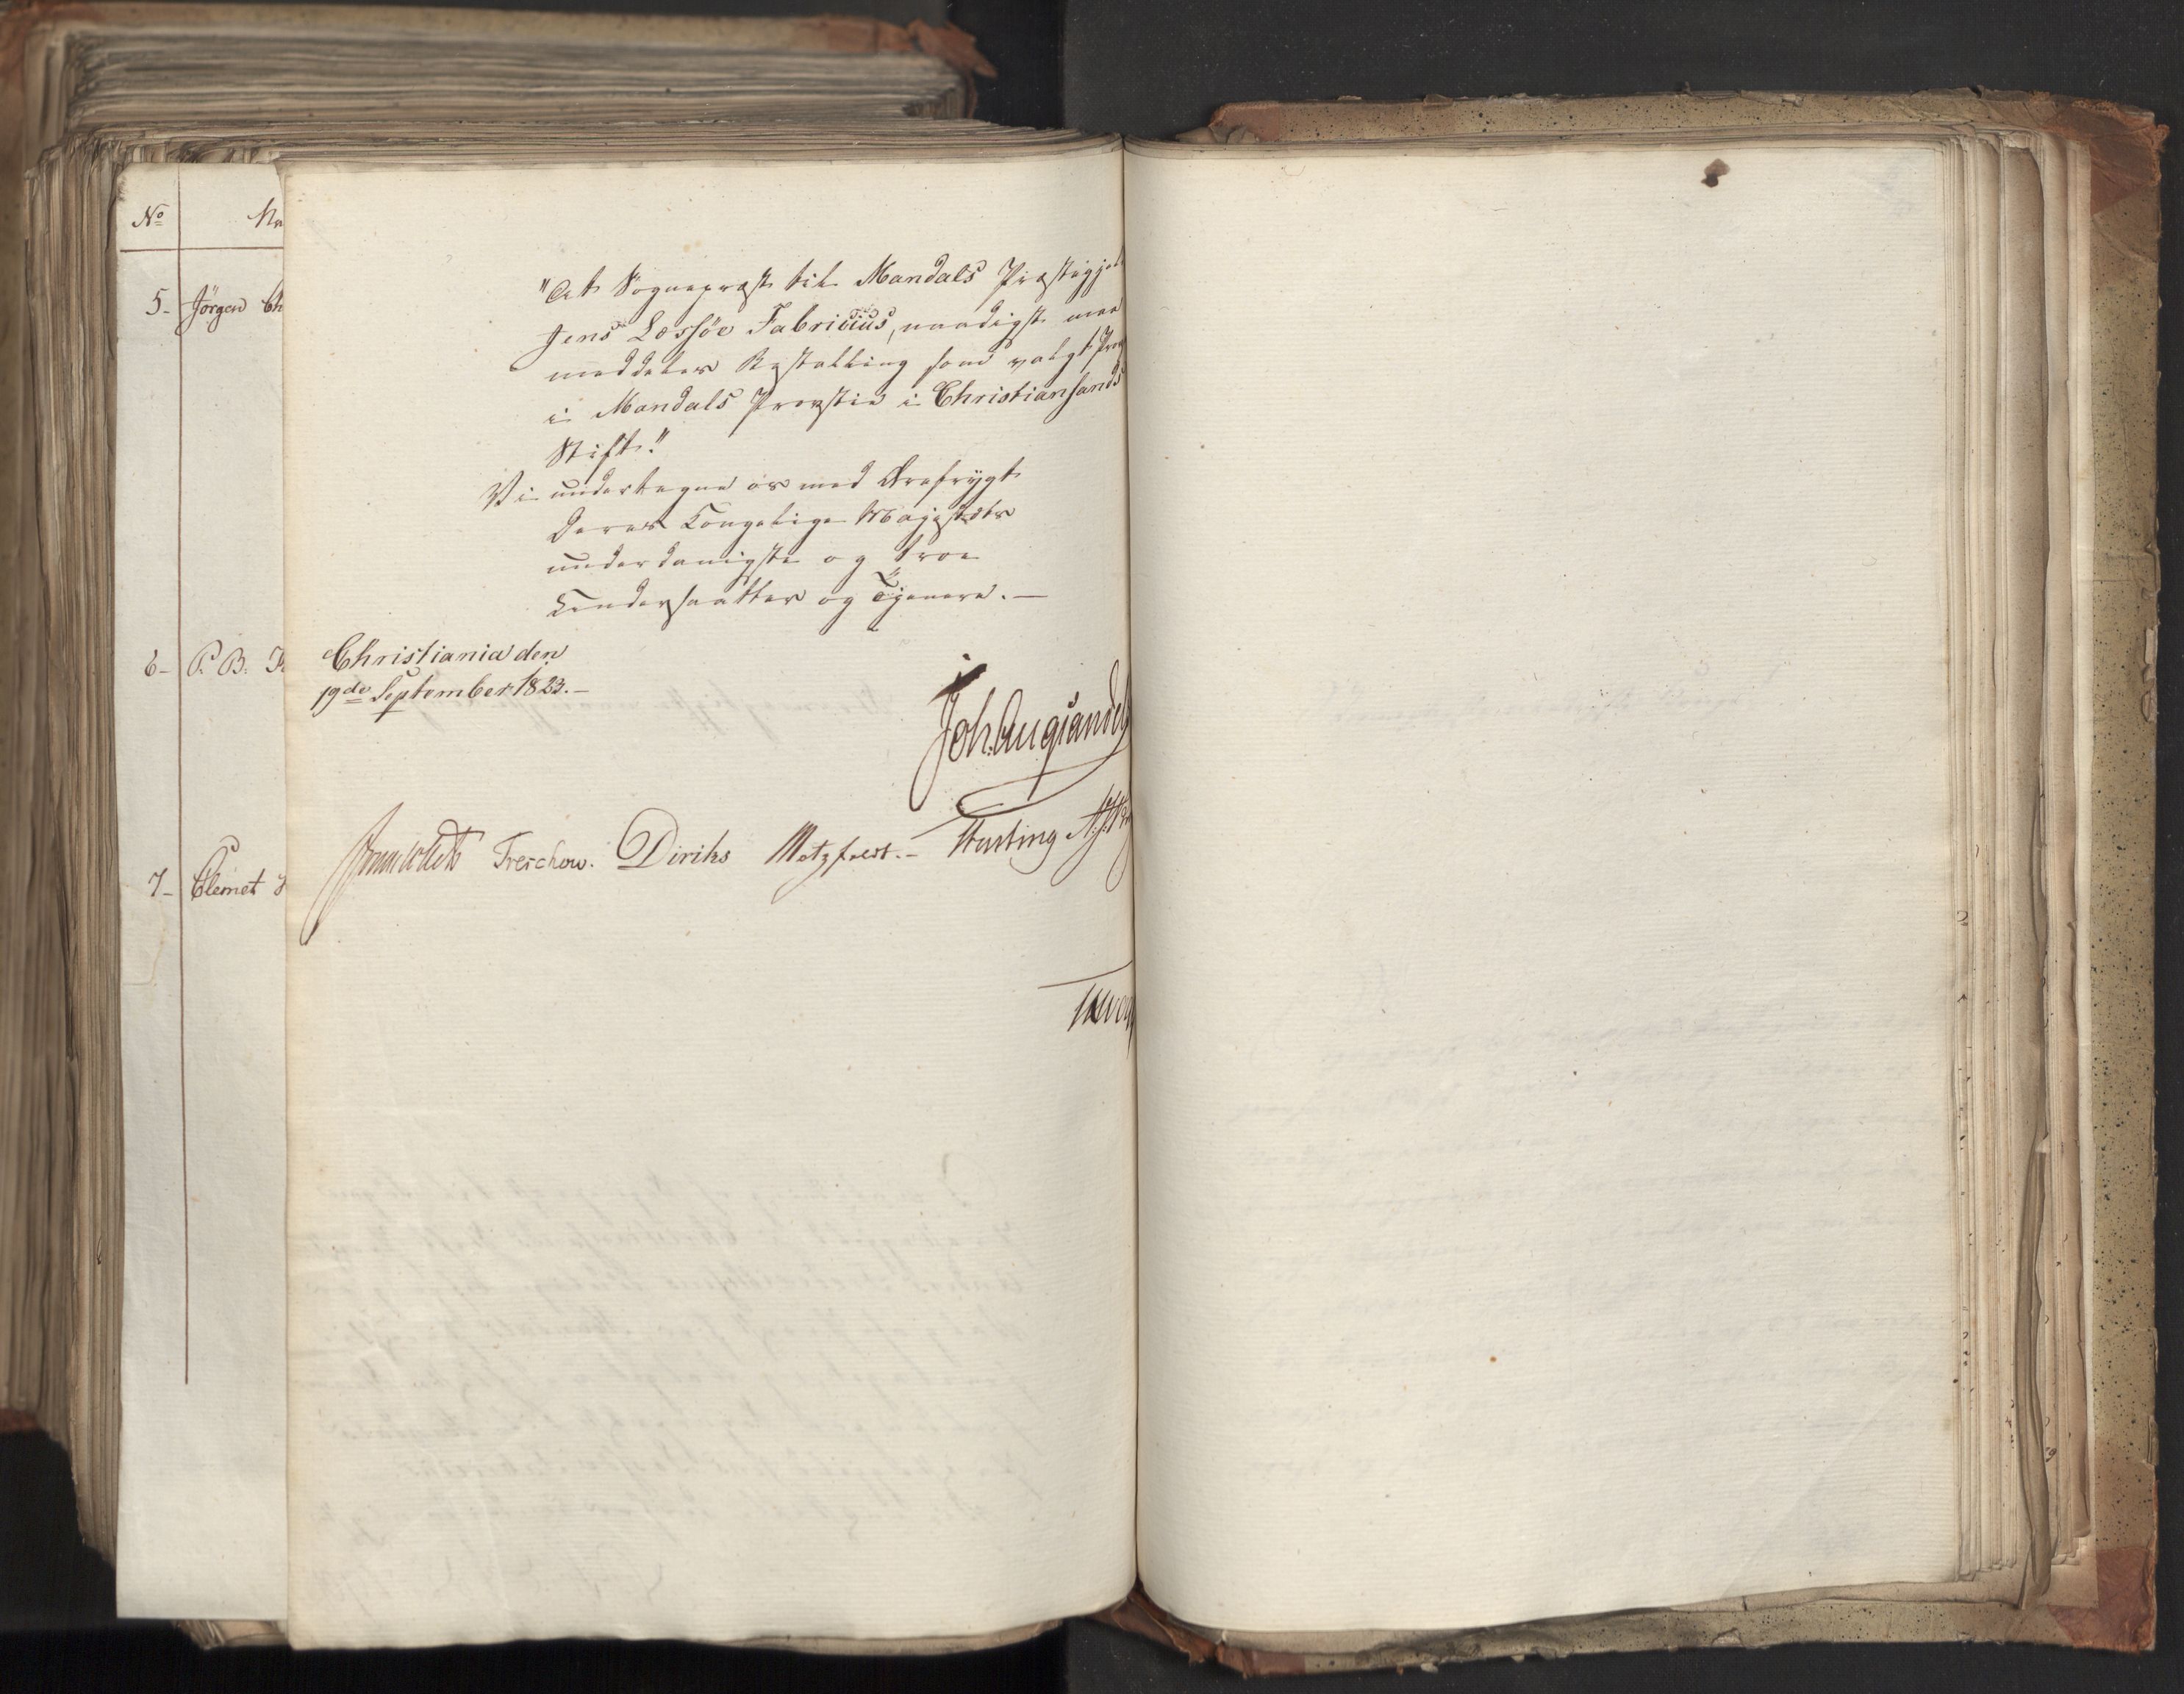 No
5- Jörgen Ch
6- P. B.
7- Clemet
"At Sogneprest til Mandals Præstegjel
Jens Læssøe Fabricius, naadigst maa
meddeles Bestalling som valgt Prov
i Mandals Provstie i Christiansands
Stift."
Vi undertegne os med Ærefrygt
Deres Kongelige Majestæts
underdanigste og troe
Undersaatter og Tjenere. —
Christiania den
19de September 1823. —
Joh. Aug Sandels
Sommerhielm Treschow. Diriks Motzfeldt. — Fasting